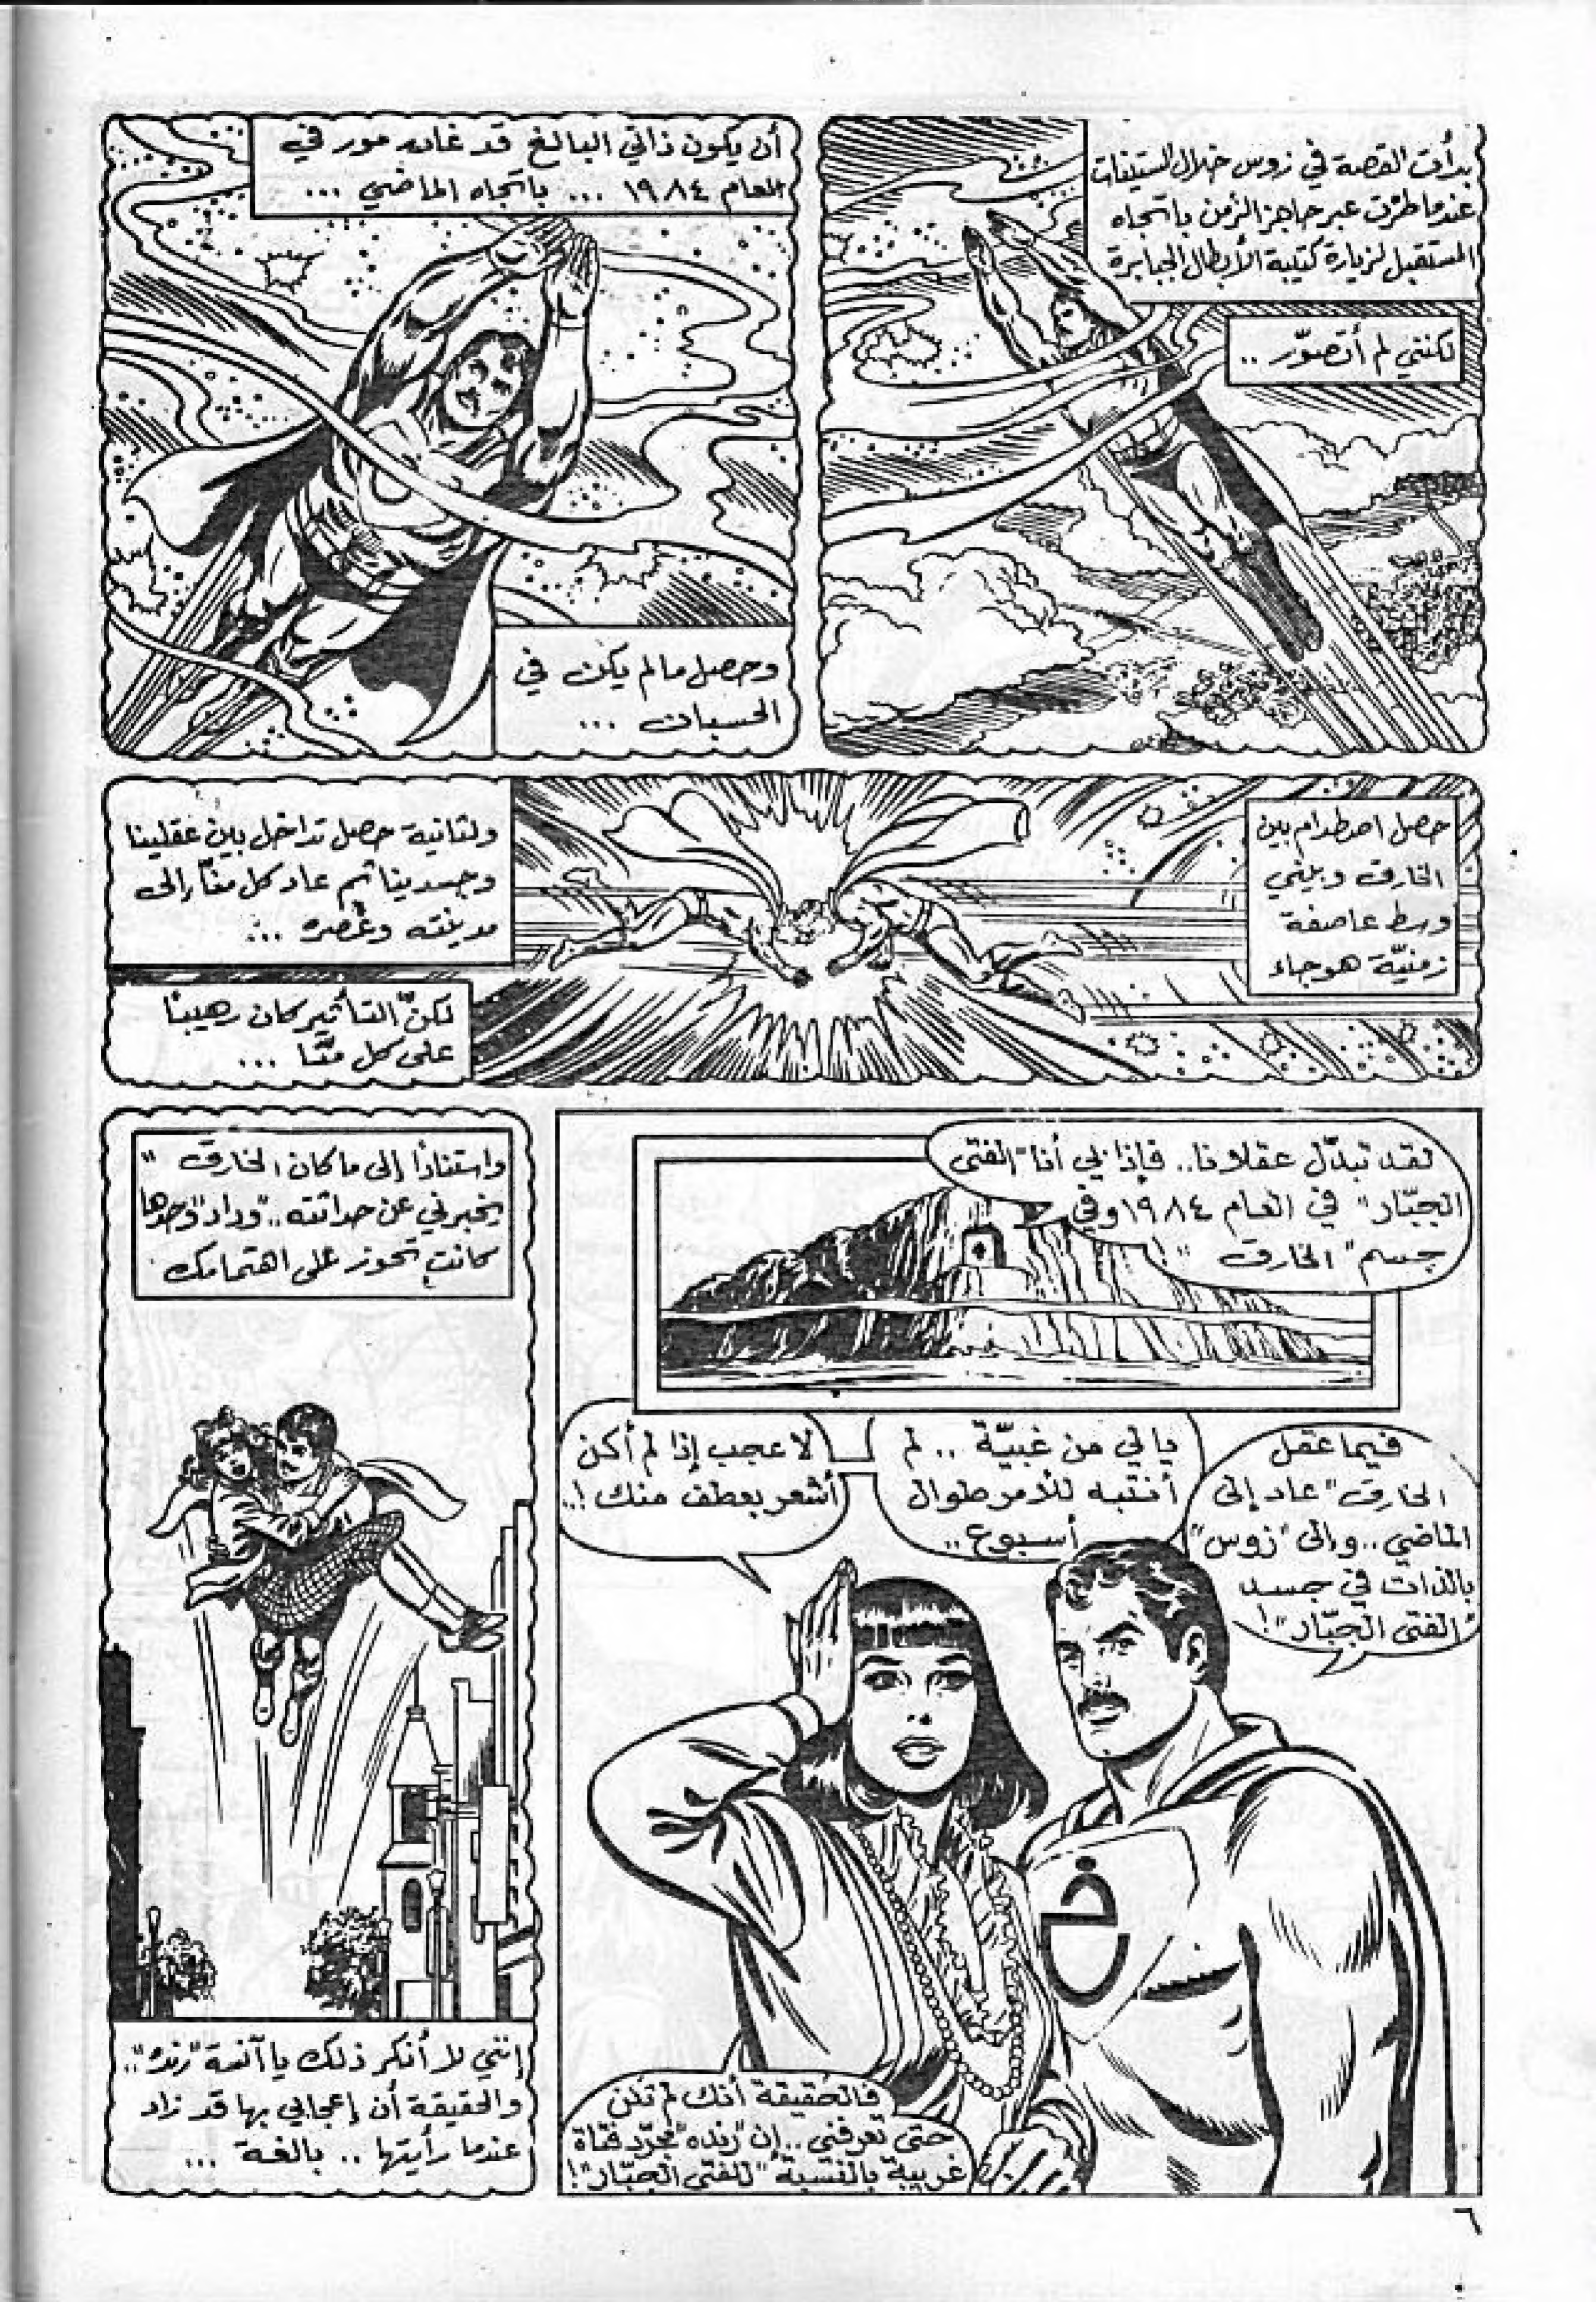 بدأت القصة في زوس خلال الستينات
عندما طرت عبر حاجز الزمن باتجاه
المستقبل لزيارة كتيبة الأبطال الجبابرة
لكنني لم أتصوّر ..
أن يكون ذاتي البالغ قد غادر مور في
العام ١٩٨٤ ... باتجاه الماضي ...
وحصل ما لم يكن في
الحسبان ...
حصل اصطدام بين
الخارق وبيني
وسط عاصفة
زمنيّة هوجاء
ولثانية حصل تداخل بين عقلينا
وجسدينا ثم عاد كل منّا إلى
مدينته وعصره ...
لكنّ التأثير كان رهيبًا
على كل منّا ...
لقد تبدّل عقلانا.. فإذا بي أنا "الفتى
الجبّار" في العام ١٩٨٤ وفي
جسم "الخارق"!
فيما عقل
"الخارق" عاد إلى
الماضي.. وإلى "زوس"
بالذات في جسد
"الفتى الجبّار"!
يا لي من غبيّة .. لم
أنتبه للأمر طوال
أسبوع ..
لا عجب إذا لم أكن
أشعر بعطف منك!..
فالحقيقة أنك لم تكن
حتى تعرفني .. إن "رنده" مجرّد فتاة
غريبة بالنسبة "للفتى الجبّار"!
خ
واستنادًا إلى ما كان الخارق "
يخبرني عن حداثته .. "وداد" وحدها
كانت تحوز على اهتمامك
إنني لا أنكر ذلك يا آنسة "رنده"..
والحقيقة أن إعجابي بها قد زاد
عندما رأيتها .. بالغة ...
٦